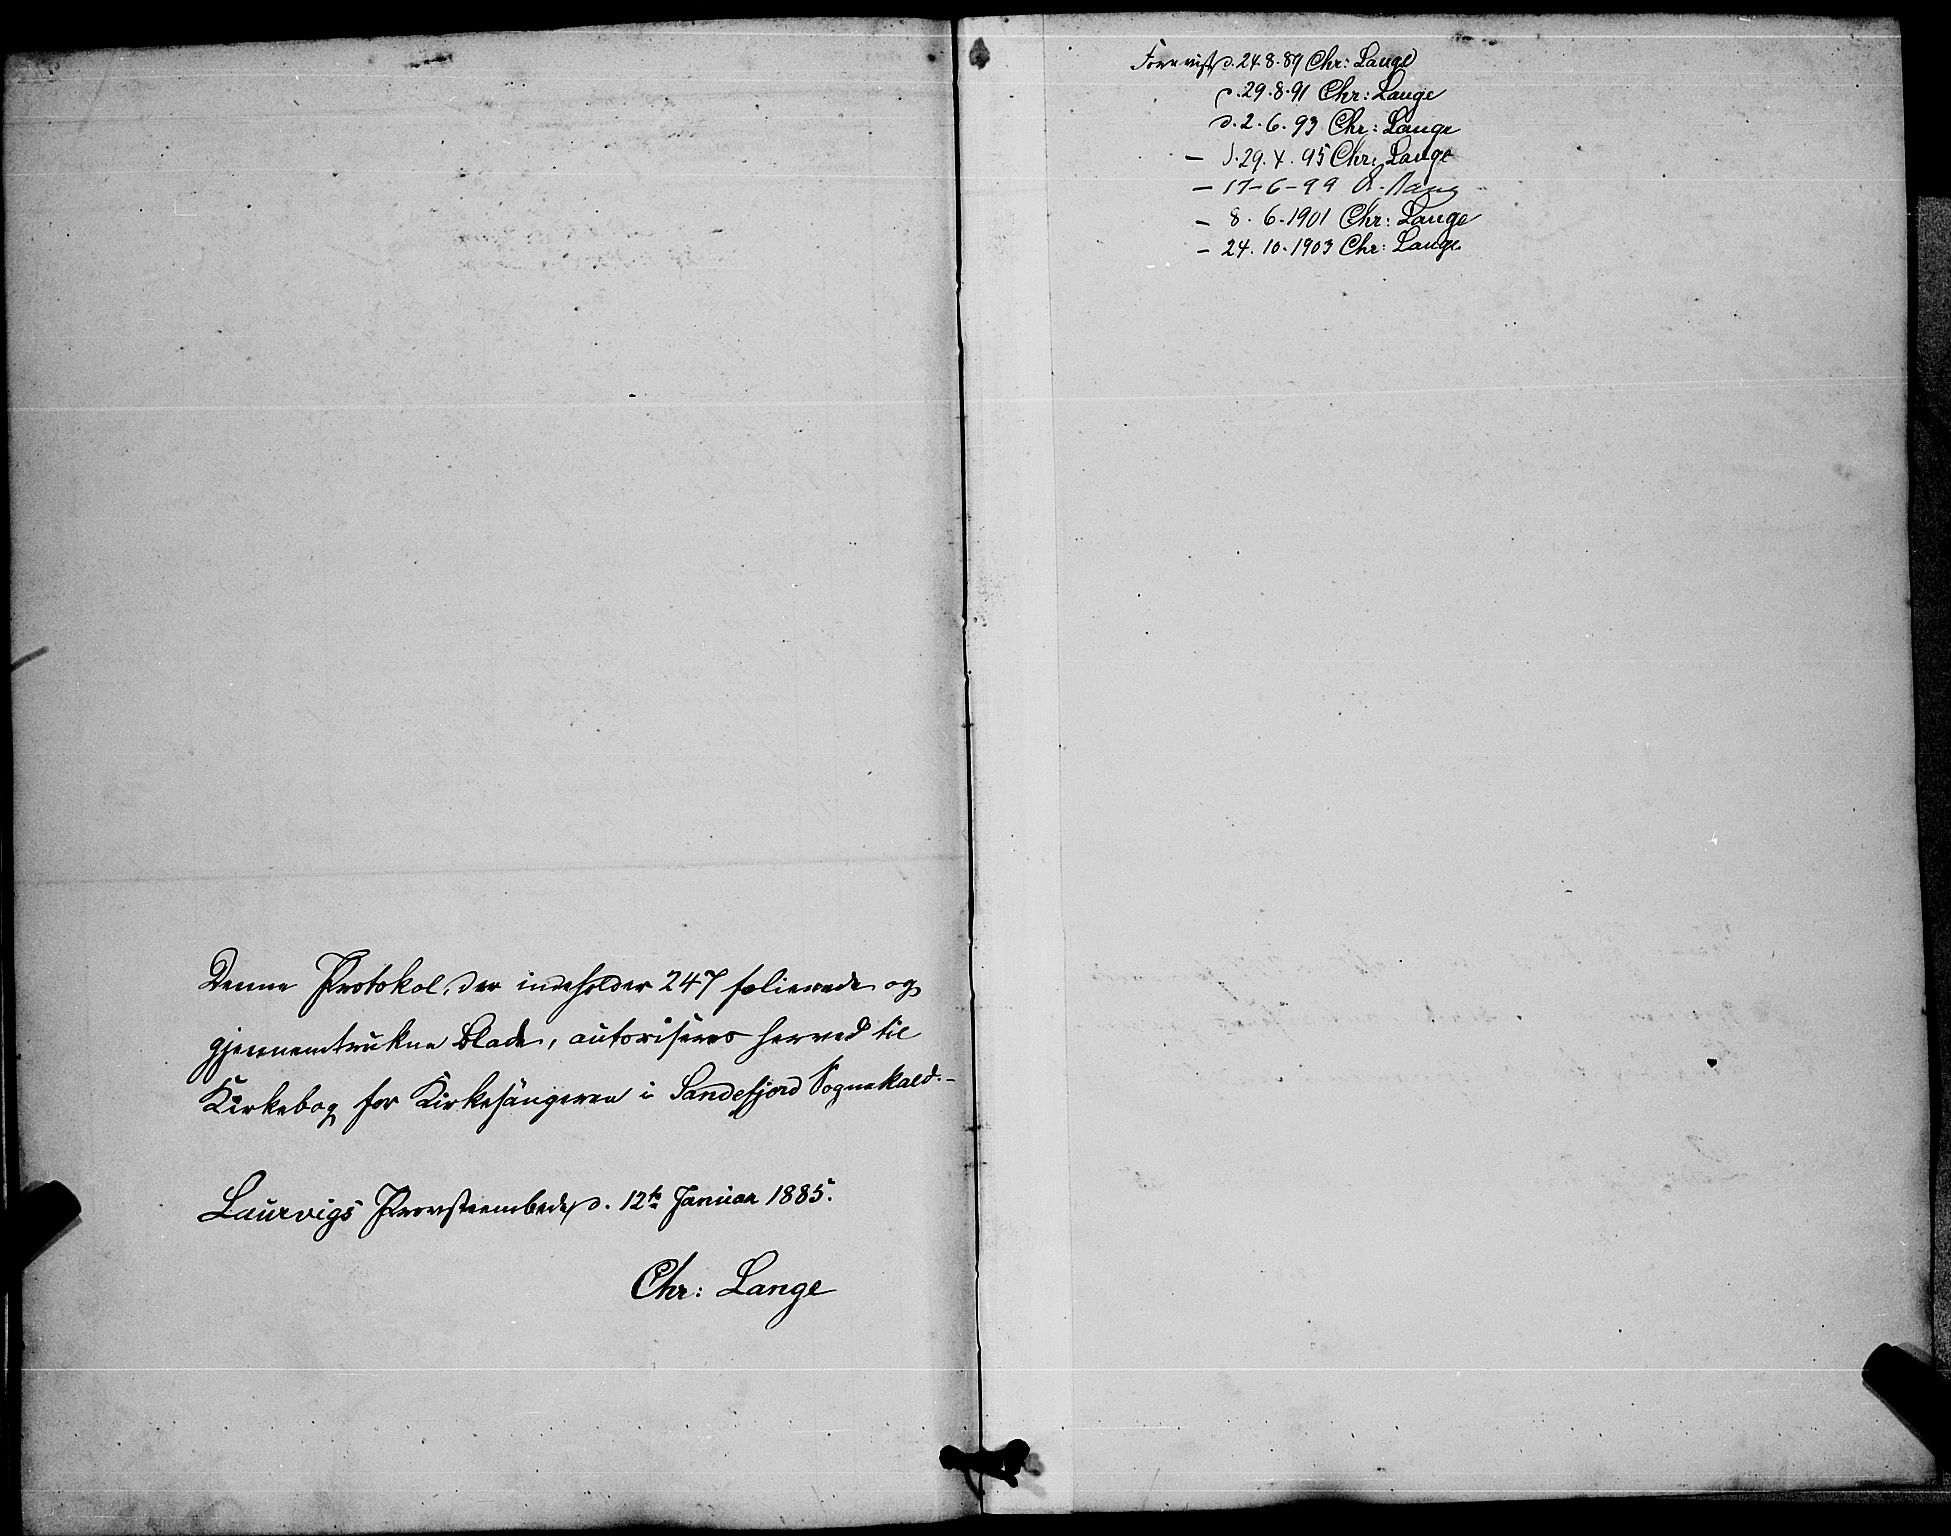 Denne Protokol, der indeholder 247 folierede og
gjennemtrukne Blade, autoriseres herved til
Kirkebog for Kirkesangeren i Sandefjord Sognekald.-
Laurvigs Provsteembede, d. 12te Januar 1885.
Chr: Lange
Forevist d. 24.8.89 Chr: Lange
d. 29.8.91 Chr: Lange
d. 2.6.93 Chr: Lange
— d. 29.4.95 Chr: Lange
— 17-6-99
— 8.6.1901 Chr: Lange
— 24.10.1903 Chr: Lange